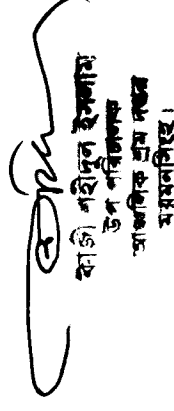 কাজী শহীদুল ইসলাম
উপ পরিচালক
আঞ্চলিক শ্রম দপ্তর
ময়মনসিংহ।